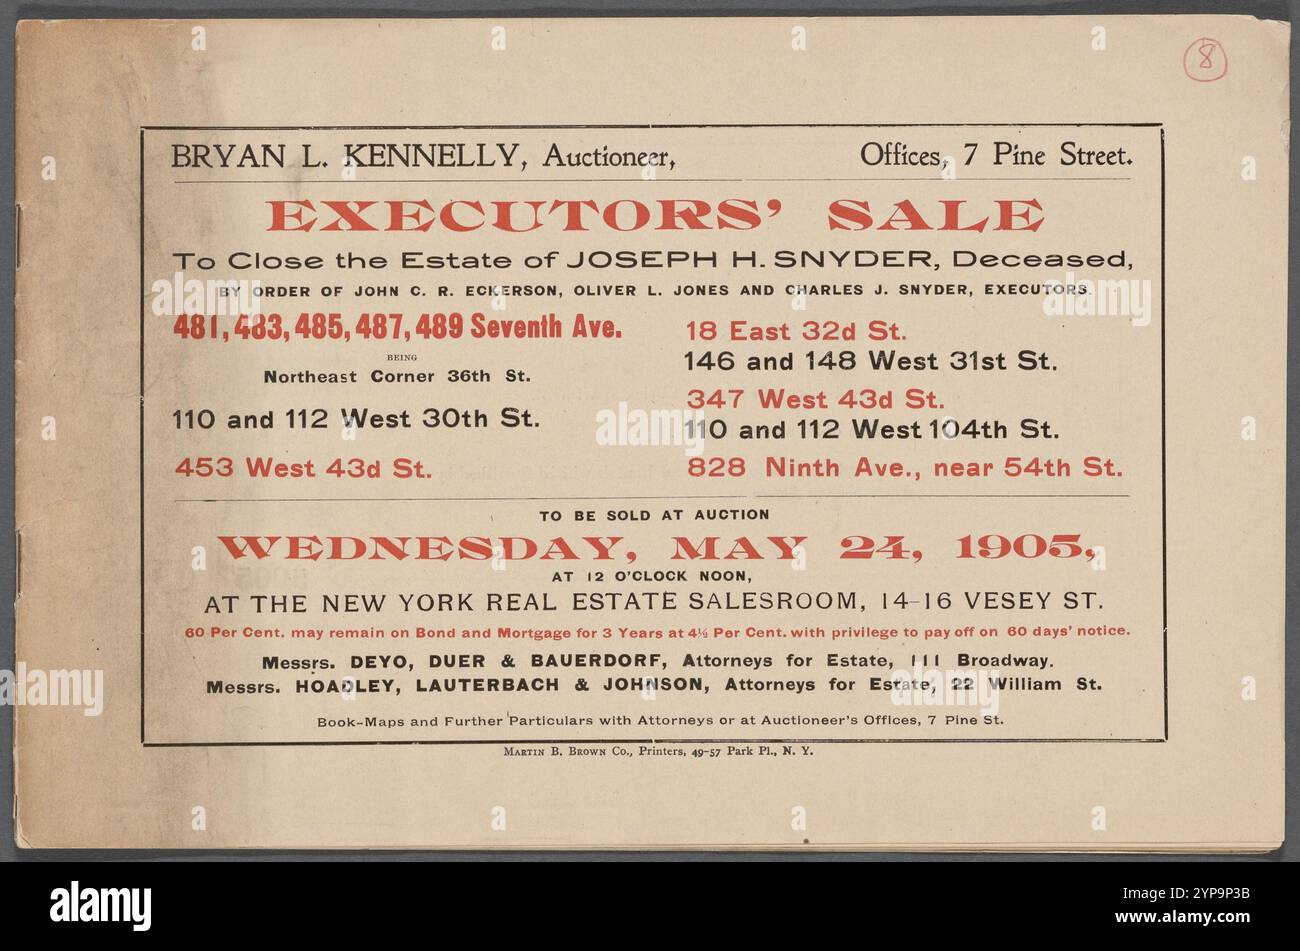 8
BRYAN L. KENNELLY, Auctioneer, Offices, 7 Pine Street.
EXECUTORS' SALE
To Close the Estate of JOSEPH H. SNYDER, Deceased,
BY ORDER OF JOHN C. R. ECKERSON, OLIVER L. JONES AND CHARLES J. SNYDER, EXECUTORS.
481, 483, 485, 487, 489 Seventh Ave.
BEING
Northeast Corner 36th St.
110 and 112 West 30th St.
453 West 43d St.
18 East 32d St.
146 and 148 West 31st St.
347 West 43d St.
110 and 112 West 104th St.
828 Ninth Ave., near 54th St.
TO BE SOLD AT AUCTION
WEDNESDAY, MAY 24, 1905,
AT 12 O'CLOCK NOON,
AT THE NEW YORK REAL ESTATE SALESROOM, 14-16 VESEY ST.
60 Per Cent. may remain on Bond and Mortgage for 3 Years at 4½ Per Cent. with privilege to pay off on 60 days' notice.
Messrs. DEYO, DUER & BAUERDORF, Attorneys for Estate, 111 Broadway.
Messrs. HOADLEY, LAUTERBACH & JOHNSON, Attorneys for Estate, 22 William St.
Book-Maps and Further Particulars with Attorneys or at Auctioneer's Offices, 7 Pine St.
MARTIN B. BROWN CO., Printers, 49-57 Park Pl., N. Y.
alamy
Image ID: 2YP9P3B
www.alamy.com